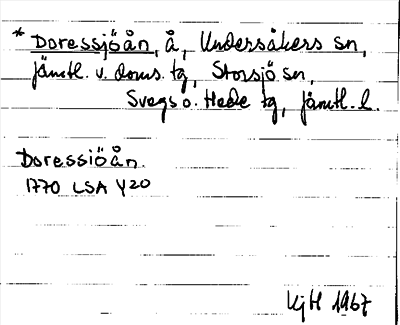 * Doressjöån, å, Undersåkers sn,
Jämtl. v. doms. tg, Storsjö sn,
Svegs o. Hede tg, Jämtl. l.
Doressiöån.
1770 LSA Y20
KjH 1967